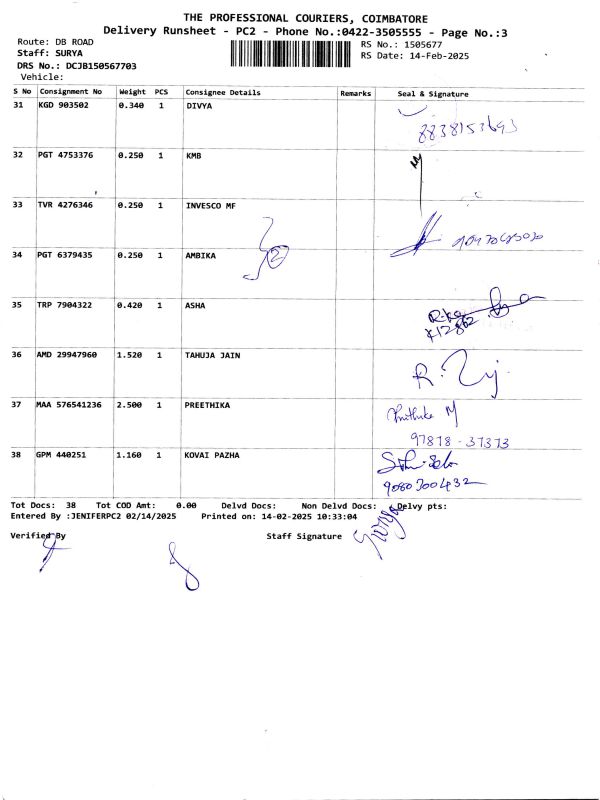 THE PROFESSIONAL COURIERS, COIMBATORE
Delivery Runsheet - PC2 - Phone No.:0422-3505555 - Page No.:3
Route: DB ROAD
RS No.: 1505677
Staff: SURYA
RS Date: 14-Feb-2025
DRS No.: DCJB150567703
Vehicle:
S No Consignment No Weight PCS Consignee Details Remarks Seal & Signature
31 KGD 903502 0.340 1 DIVYA
8838153693
32 PGT 4753376 0.250 1 KMB
33 TVR 4276346 0.250 1 INVESCO MF
34 PGT 6379435 0.250 1 AMBIKA
2
35 TRP 7904322 0.420 1 ASHA
36 AMD 29947960 1.520 1 TAHUJA JAIN
37 MAA 576541236 2.500 1 PREETHIKA
97878-37373
38 GPM 440251 1.160 1 KOVAI PAZHA
9080700432
Tot Docs: 38 Tot COD Amt: 0.00 Delvd Docs: Non Delvd Docs: Delvy pts:
Entered By :JENIFERPC2 02/14/2025 Printed on: 14-02-2025 10:33:04
Verified By Staff Signature Surya